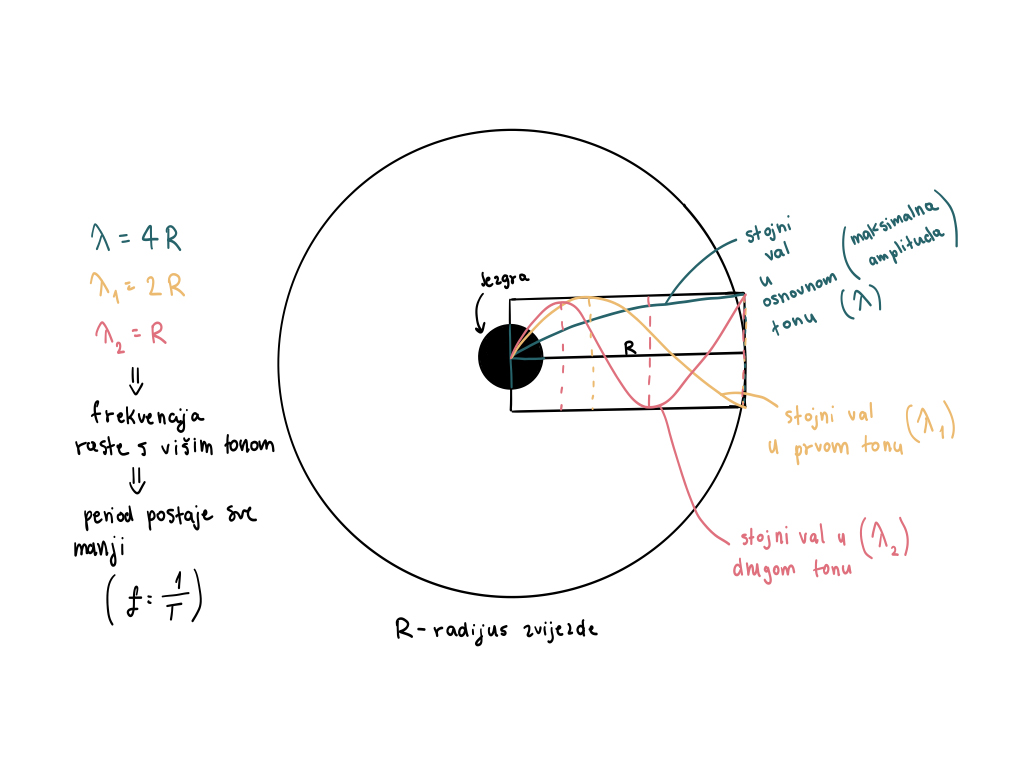 λ = 4R
λ₁ = 2R
λ₂ = R
⇓
frekvencija
raste s višim tonom
⇓
period postaje sve
manji
(f = 1/T)
Jezgra
R
stojni
val
u
osnovnom
tonu (λ)
(maksimalna
amplituda)
stojni val
u prvom tonu (λ₁)
stojni val u (λ₂)
drugom tonu
R - radijus zvijezde